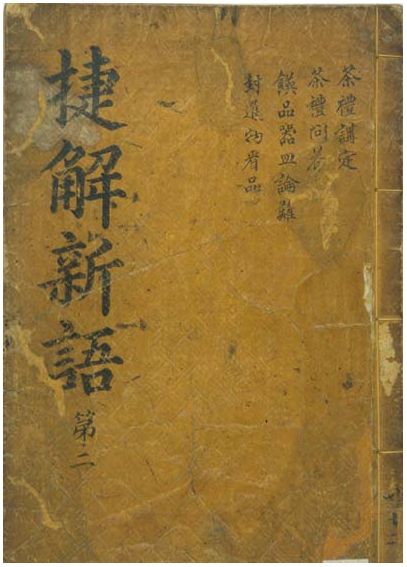 茶禮講定
茶禮問答
饌品器皿論難
封進物看品
捷解新語
第二